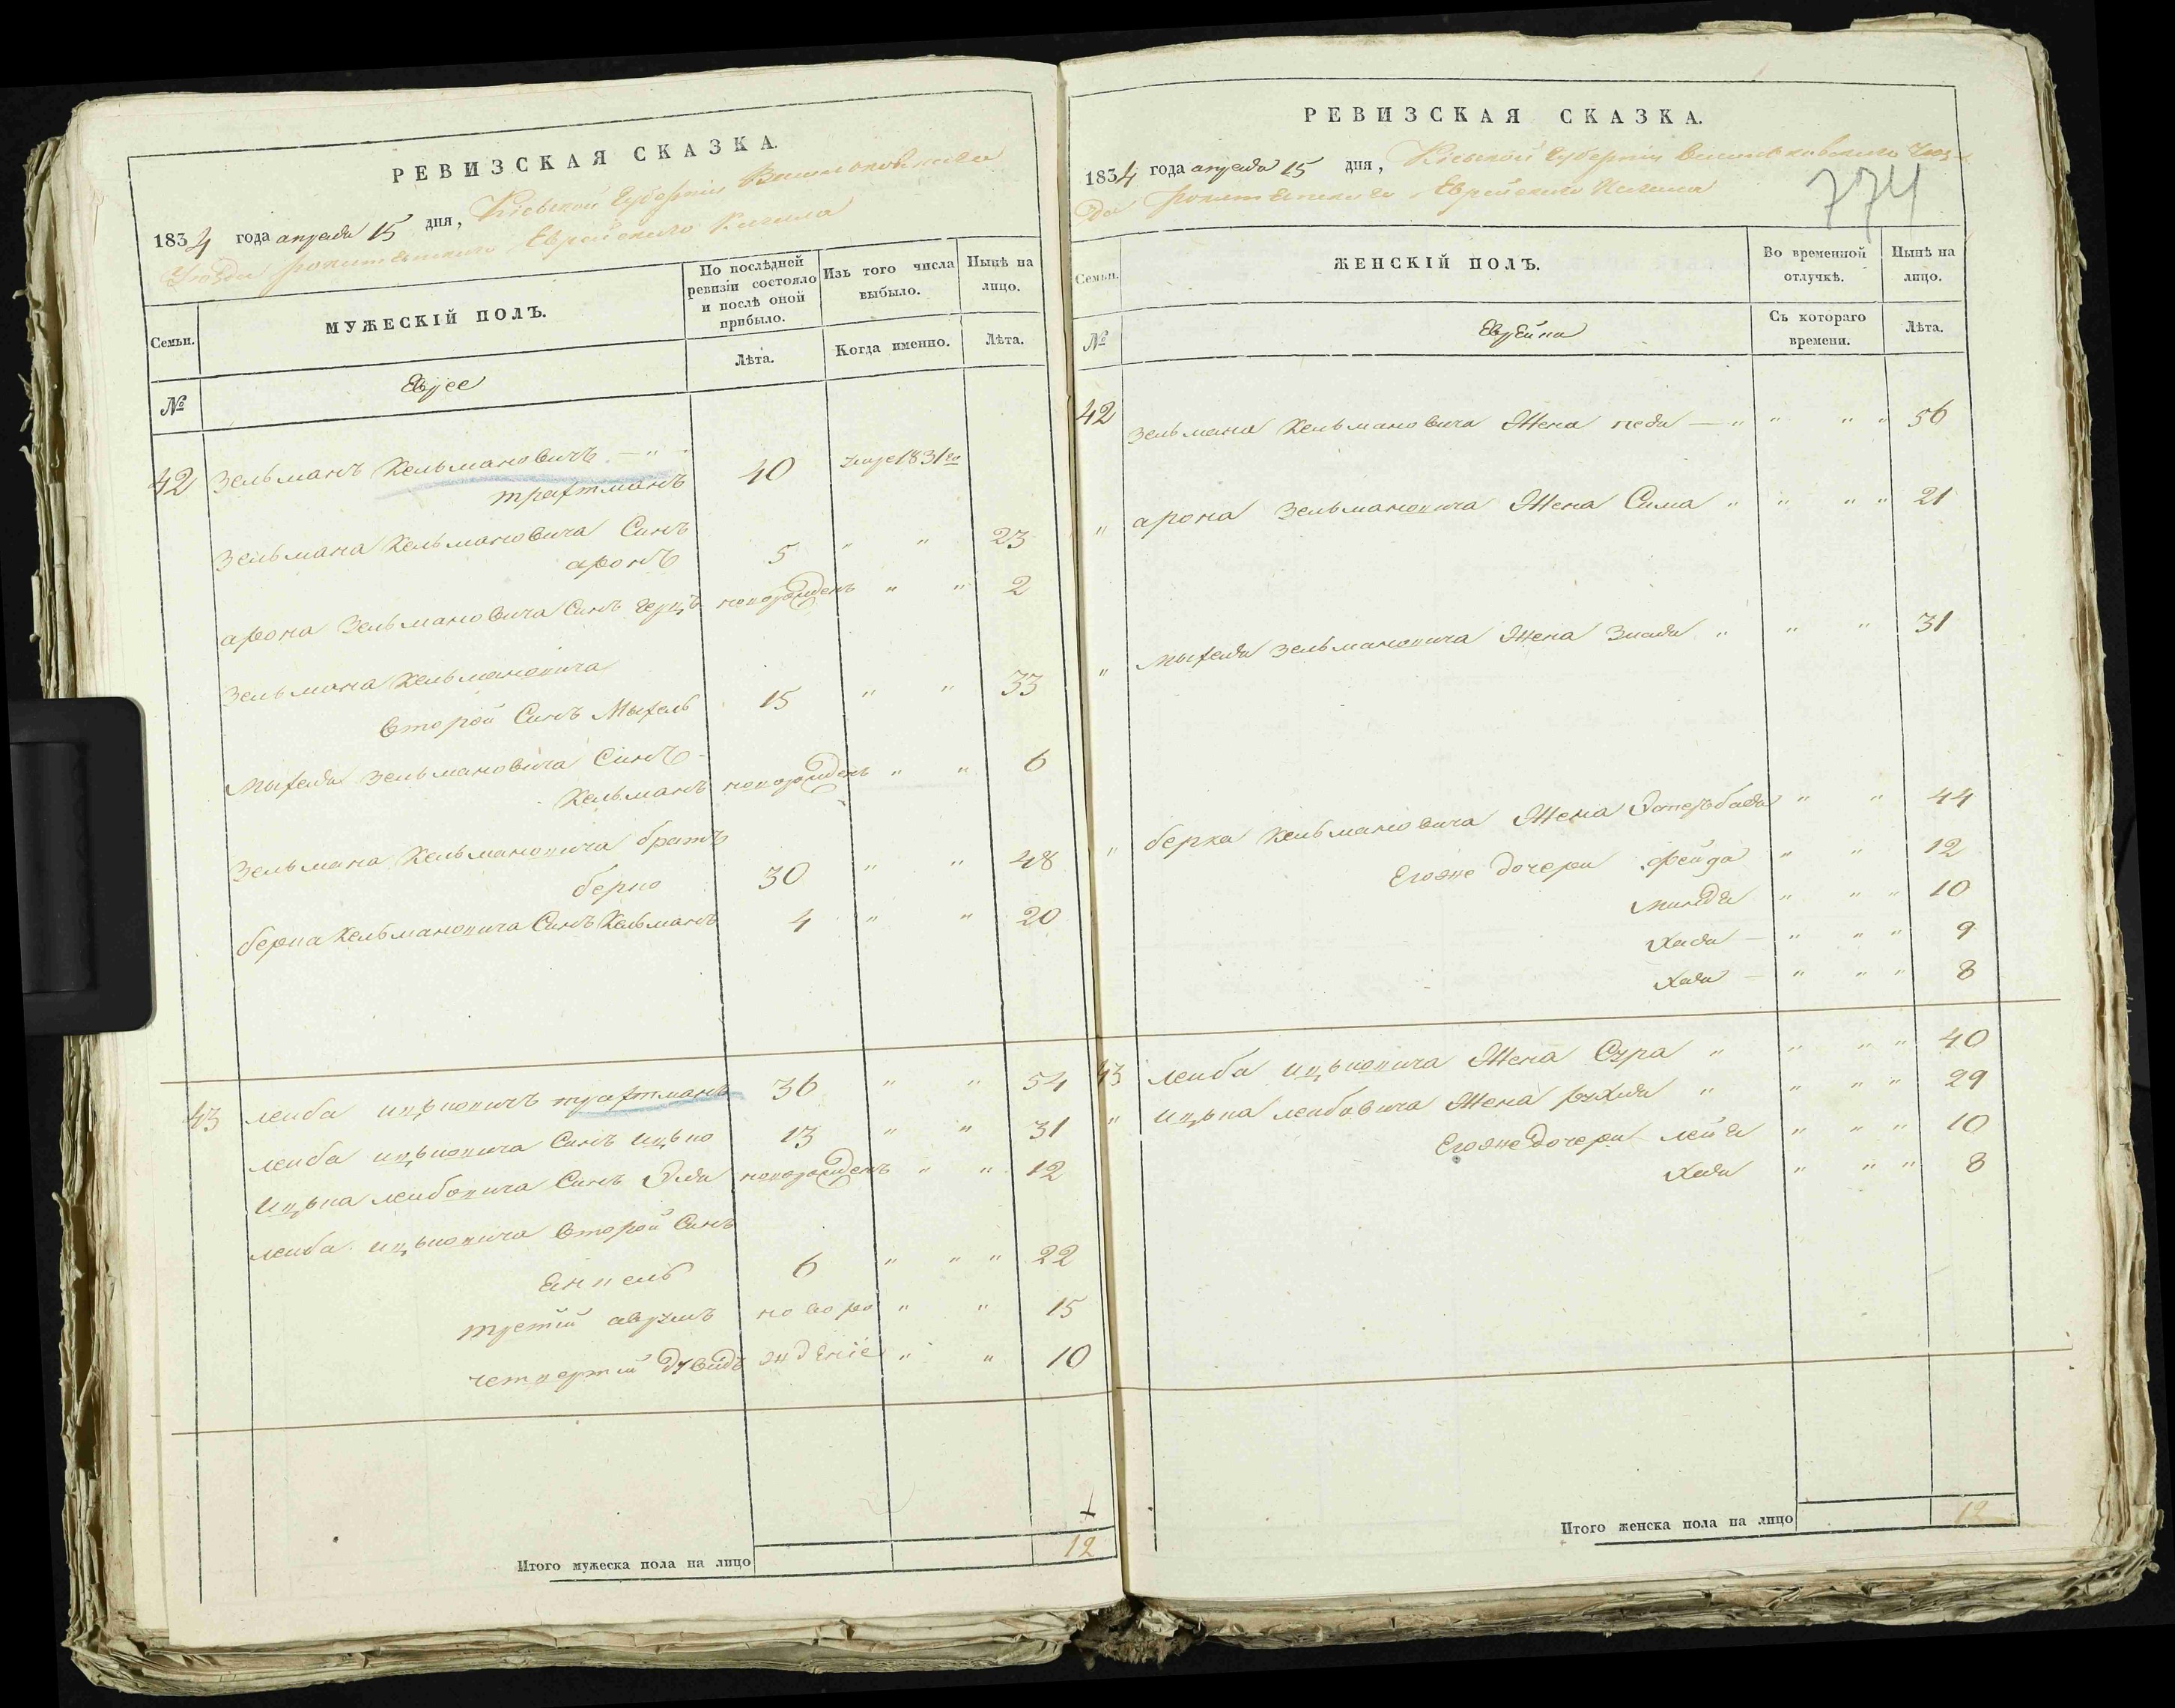 РЕВИЗСКАЯ СКАЗКА.
1834 года апреля 15 дня, Кіевской Губерніи Васильковскаго
Уезда рокитянского Еврейского Кагала
Семьи. МУЖЕСКІЙ ПОЛЪ. По послѣдней ревизіи состояло и послѣ оной прибыло. Изъ того числа выбыло. Нынѣ на лицо.
№ Еврее Лѣта. Когда именно. Лѣта.
42 Зельманъ Кельмановичъ — "
трахтманъ 40 умре 1831го
Зельмана Кельмановича Синъ
аронъ 5 " " 23
арона Зельмановича Синъ герцъ новорожденъ " " 2
Зельмана Кельмановича
Второй Синъ Мыхель 15 " " 33
Мыхеля Зельмановича Синъ
Кельманъ новорожденъ " " 6
Зельмана Кельмановича братъ
берко 30 " " 48
берка Кельмановича Синъ Кельманъ 4 " " 20
43 лейба ицьковичъ трахтманъ 36 " " 54
лейба ицьковича Синъ ицько 13 " " 31
ицька лейбовича Синъ Эля новорожденъ " " 12
лейба ицьковича Второй Синъ
Енкель 6 " " " 22
третій аврумъ новоро " " 15
четвертій Дувидъ жденіе " " 10
Итого мужеска пола на лицо 12
РЕВИЗСКАЯ СКАЗКА.
1834 года апреля 15 дня, Кіевской Губерніи Васильковского Уез-
да рокитянского Еврейского Кагала
774
Семьи. ЖЕНСКІЙ ПОЛЪ. Во временной отлучкѣ. Нынѣ на лицо.
№ Еврейка Съ котораго времени. Лѣта.
42 Зельмана Кельмановича Жена песя — " " " " 56
" арона Зельмановича Жена Сима " " " " 21
" Мыхеля Зельмановича Жена Злата " " " 31
" берка Кельмановича Жена " " 44
Егоже дочери фейга " " 12
миндля " " " 10
Хася — " " " 9
Хая — " " " 8
43 лейба ицьковича Жена Сура " " " " 40
" ицька лейбовича Жена рухля " " " " 29
Егоже дочери лейя " " " 10
Хая " " " 8
Итого женска пола на лицо 12